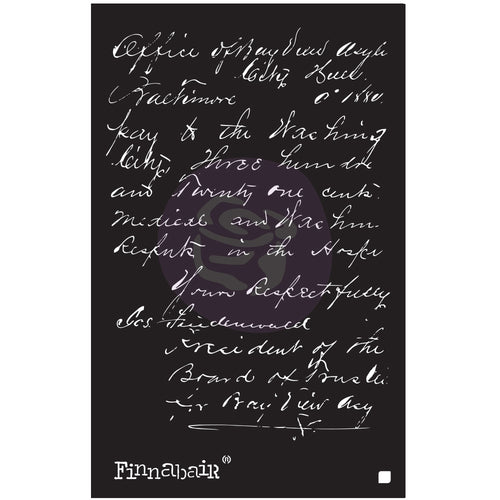 Office of Bay View Asyl
City Hall
Baltimore 1880.
pay to the Washing
City, Three hundre
and Twenty one cents.
Medical and Washin
in the Hospi
Yours Respectfully
President of the
Board of Truste
for Bay View Asy
Finnabair®